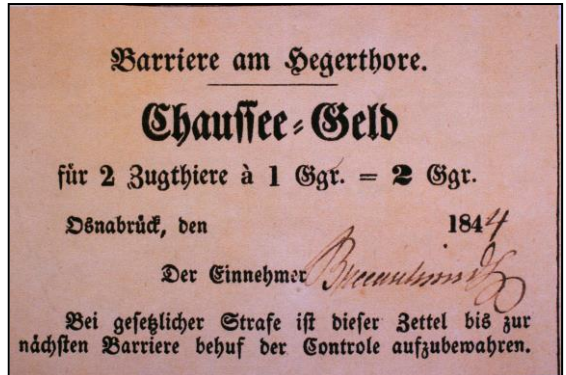 Barriere am Hegerthore.
Chaussee-Geld
für 2 Zugthiere à 1 Ggr. = 2 Ggr.
Osnabrück, den 1844
Der Einnehmer
Bei gesetzlicher Strafe ist dieser Zettel bis zur
nächsten Barriere behuf der Controle aufzubewahren.